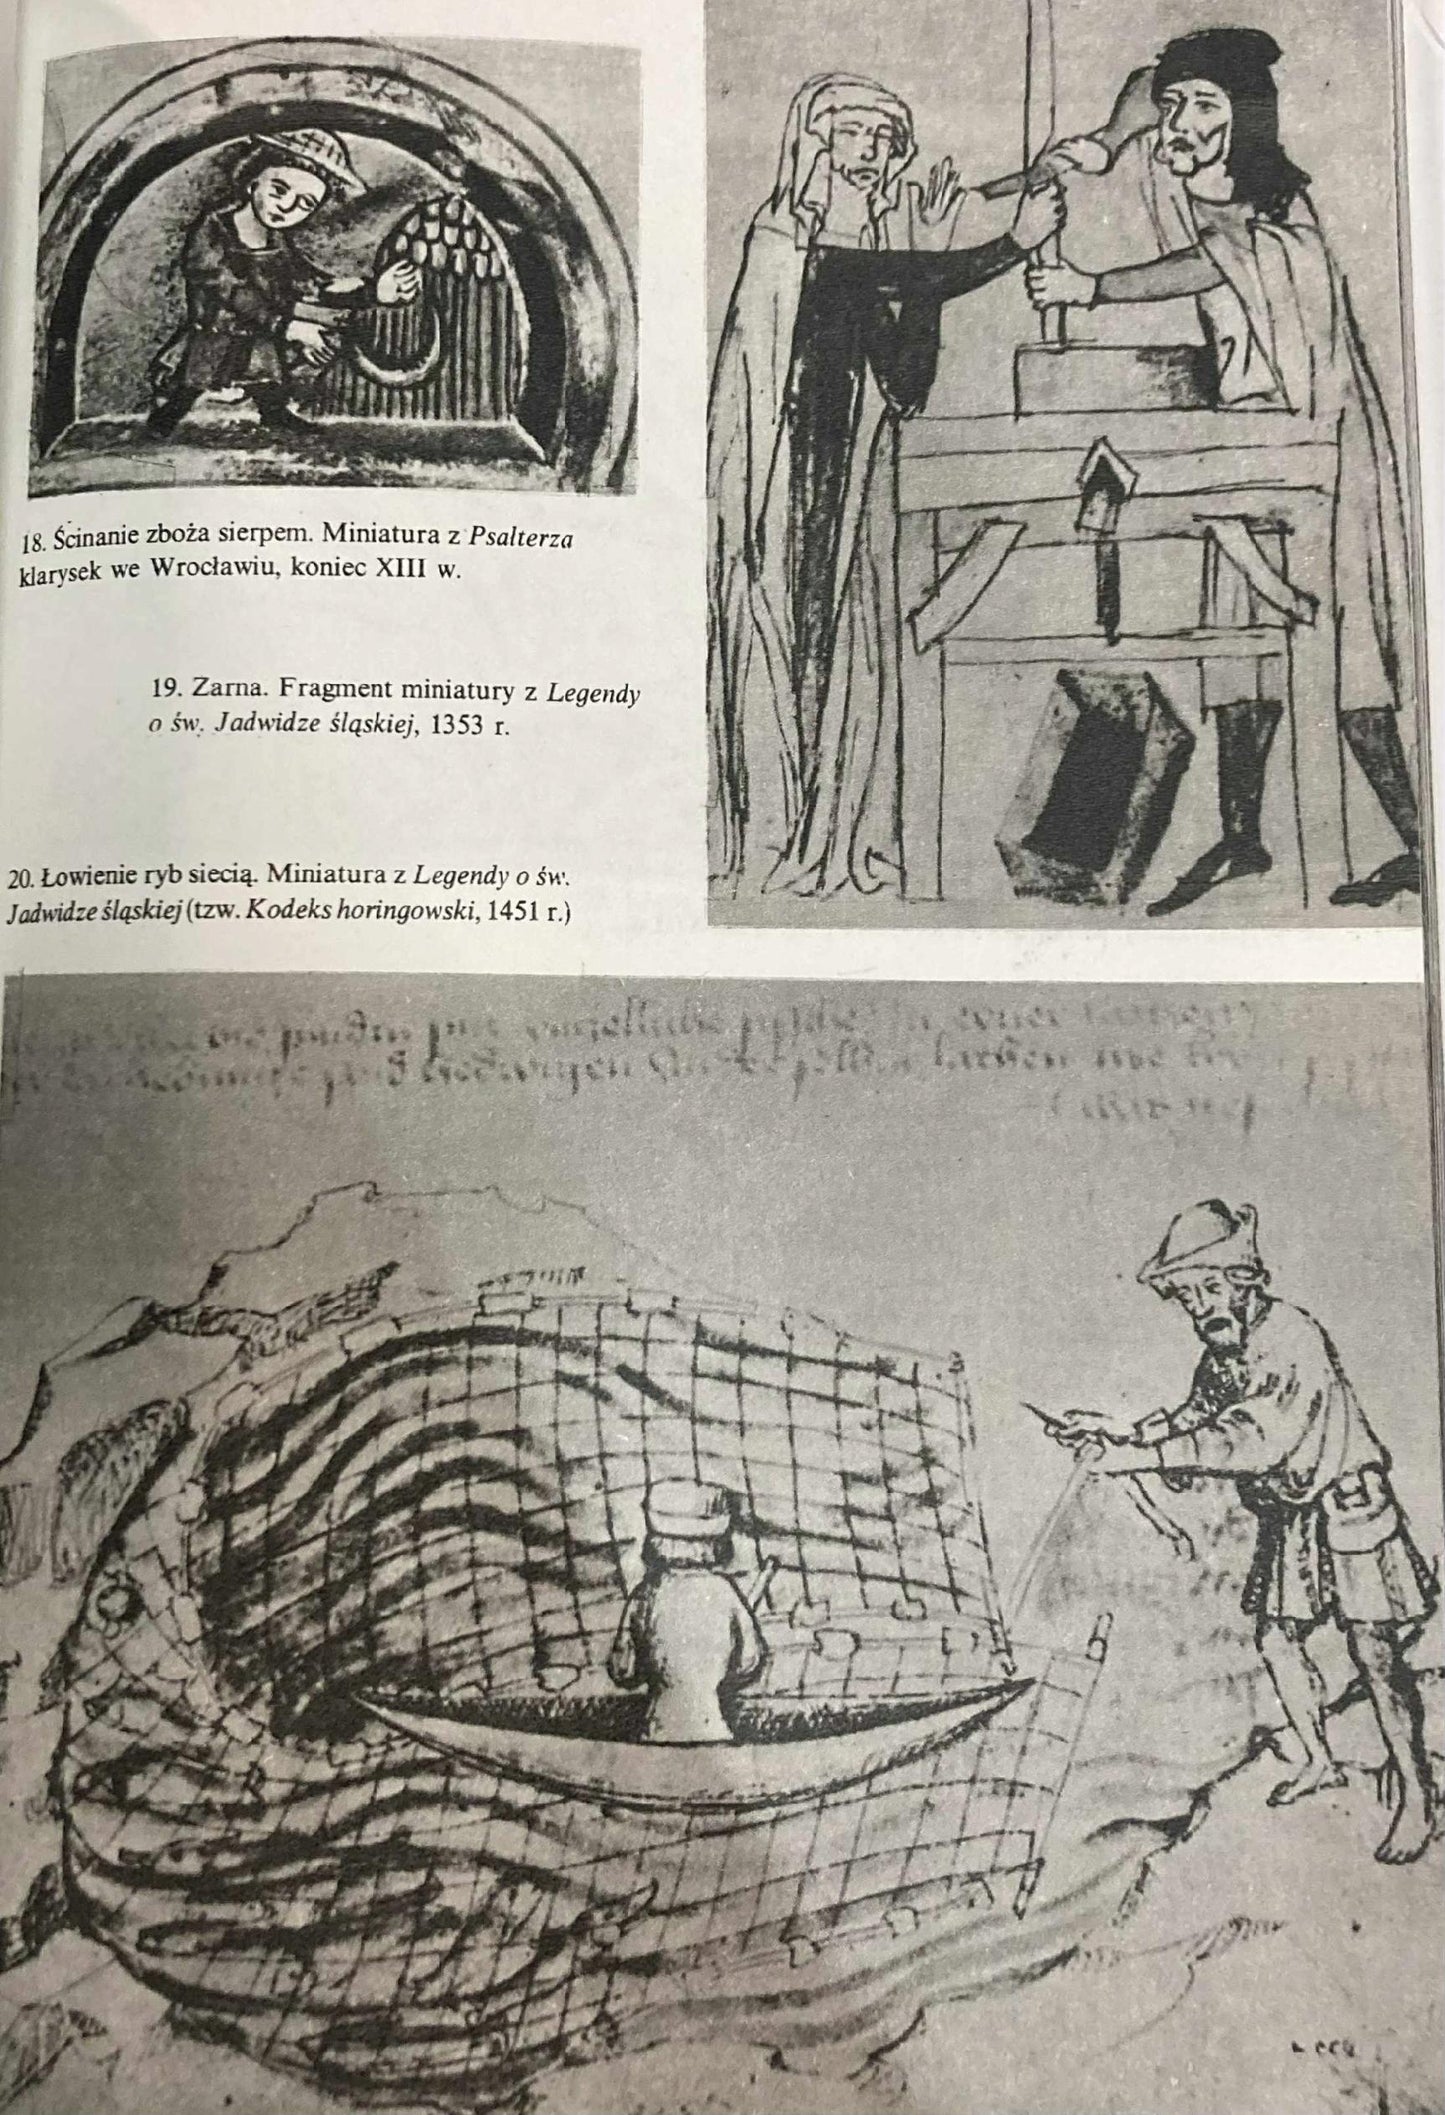 18. Ścinanie zboża sierpem. Miniatura z Psałterza
klarysek we Wrocławiu, koniec XIII w.
19. Żarna. Fragment miniatury z Legendy
o św. Jadwidze śląskiej, 1353 r.
20. Łowienie ryb siecią. Miniatura z Legendy o św.
Jadwidze śląskiej (tzw. Kodeks horingowski, 1451 r.)